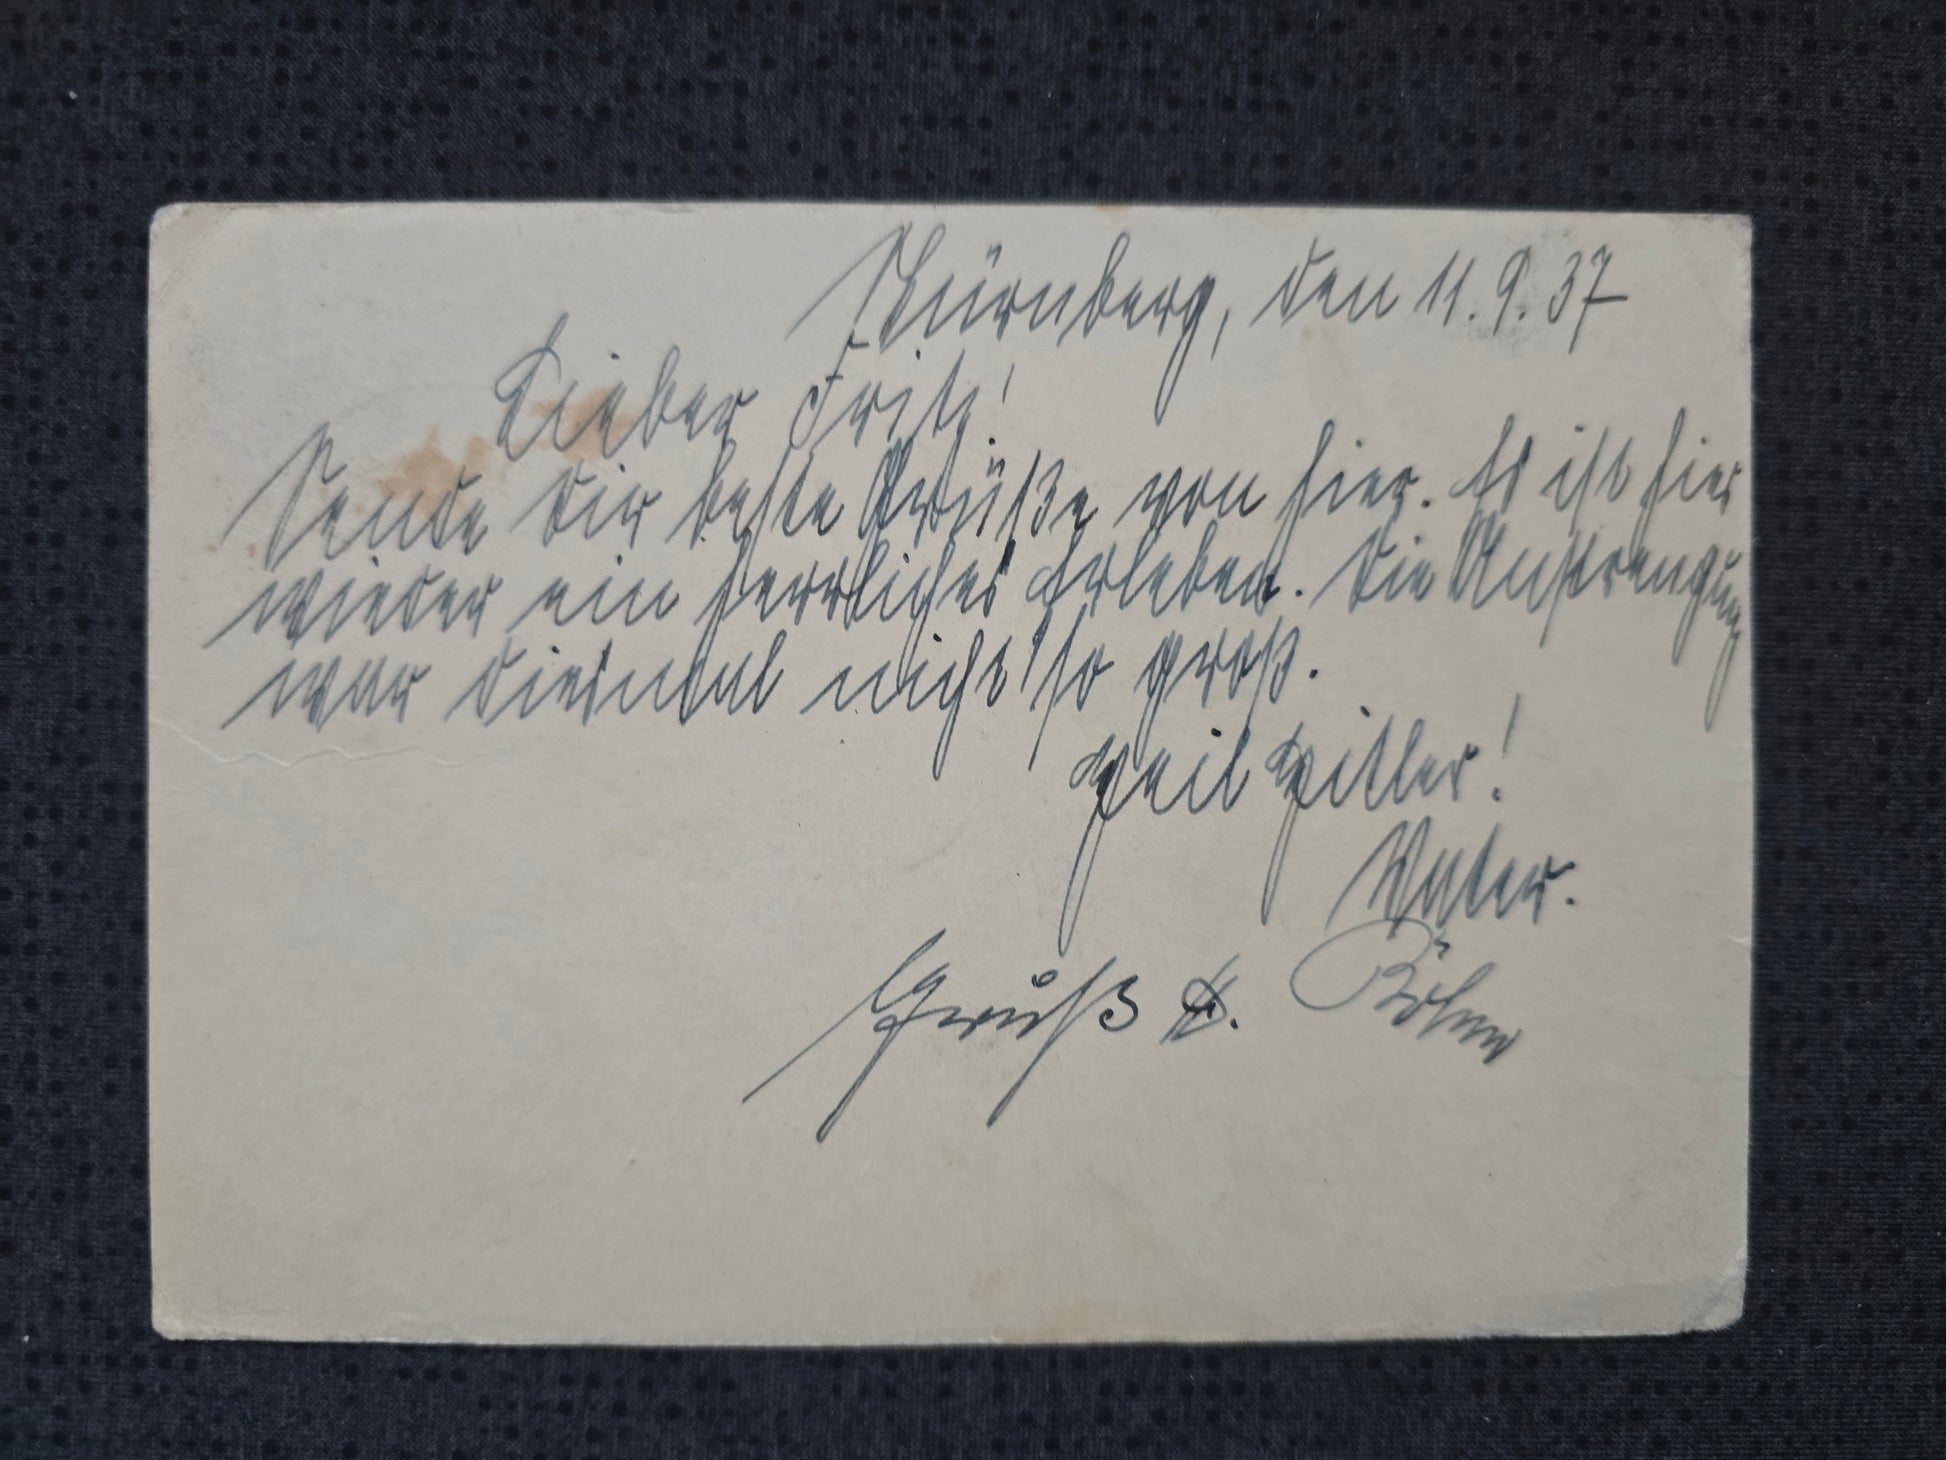 Nürnberg, den 11.9.37
Lieber Fritz!
Sende Dir beste Grüße von hier. Es ist hier
wieder ein herrliches Erleben. Die Anstrengung
war diesmal nicht so groß.
Heil Hitler!
Vater.
Gruß